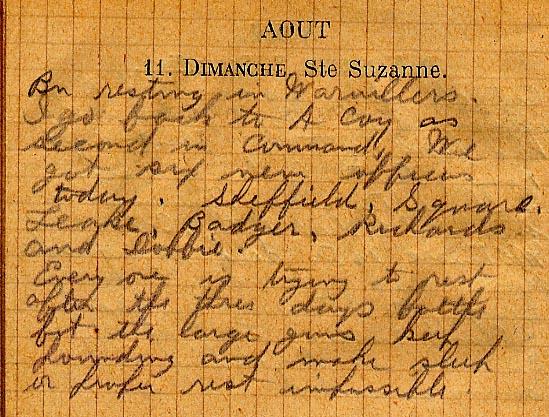 AOUT
11. DIMANCHE, Ste Suzanne.
Bn resting in Warvillers.
I go back to A Coy as
second in Command, We
got six new officers
today. Sheffield, Square,
Leake, Badger, Richards
and Dobbie.
Every one is trying to rest
after the three days battle
but the large guns keep
pounding and make sleep
or proper rest impossible.